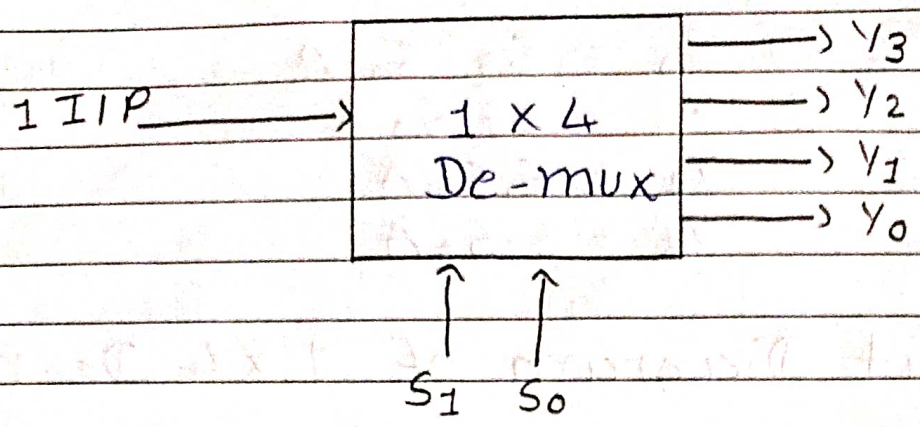 1 I/P
1 X 4
De-mux
Y3
Y2
Y1
Y0
S1 S0